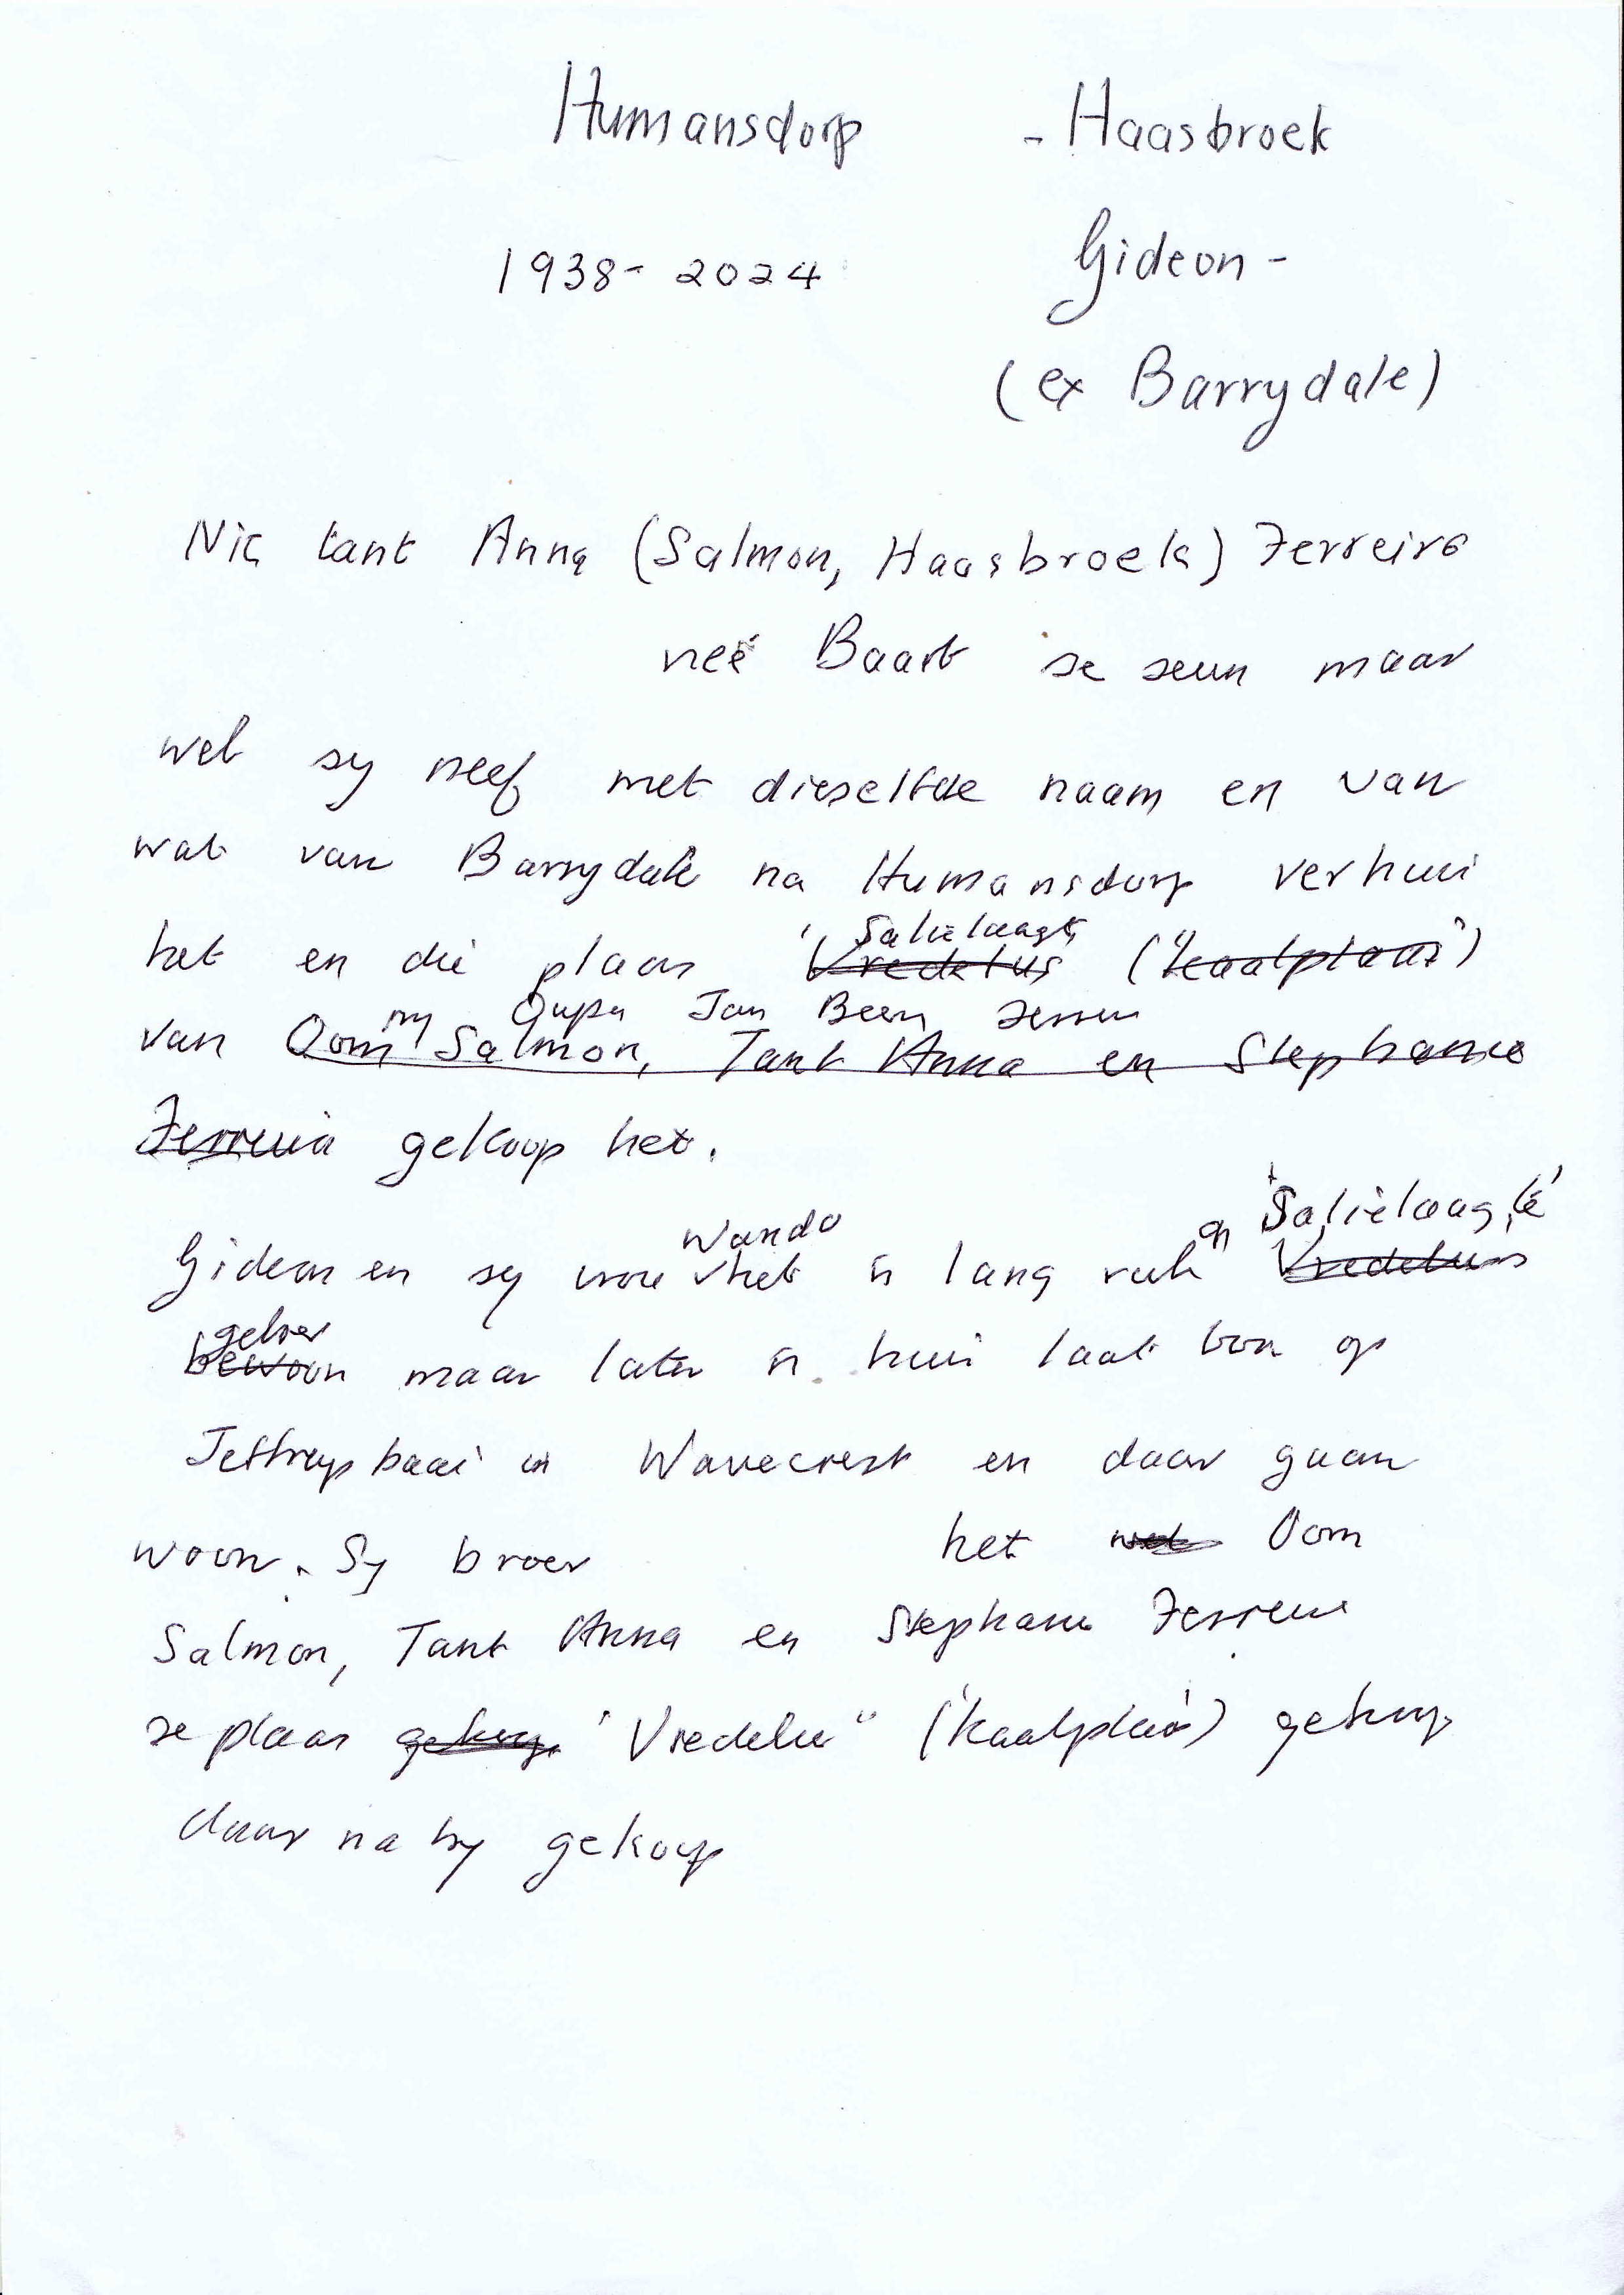 Humansdorp - Haasbroek
1938 - 2024 Gideon -
(ex Barrydale)
Nie tant Anna (Salmon, Haasbroek) Ferreira
neé Baart se seun maar
wel sy neef met dieselfde naam en van
wat van Barrydale na Humansdorp verhuis
Salielaagte
het en die plaas ' Vredelus ('kaalplaas')
my Oupa Jan Been
van Oom Salmon, Tant Anna en Stephanie
Ferreira gekoop het.
Wanda op 'Salielaagte'
Gideon en sy vrou het 'n lang ruk Vredelus
geboer
bewoon maar later 'n huis laat bou op
Jeffreysbaai in Wavecrest en daar gaan
woon. Sy broer het Oom
Salmon, Tant Anna en Stephanie Ferreira
se plaas gekoop "Vredelus" ('kaalplaas') gekoop
daar naby gekoop